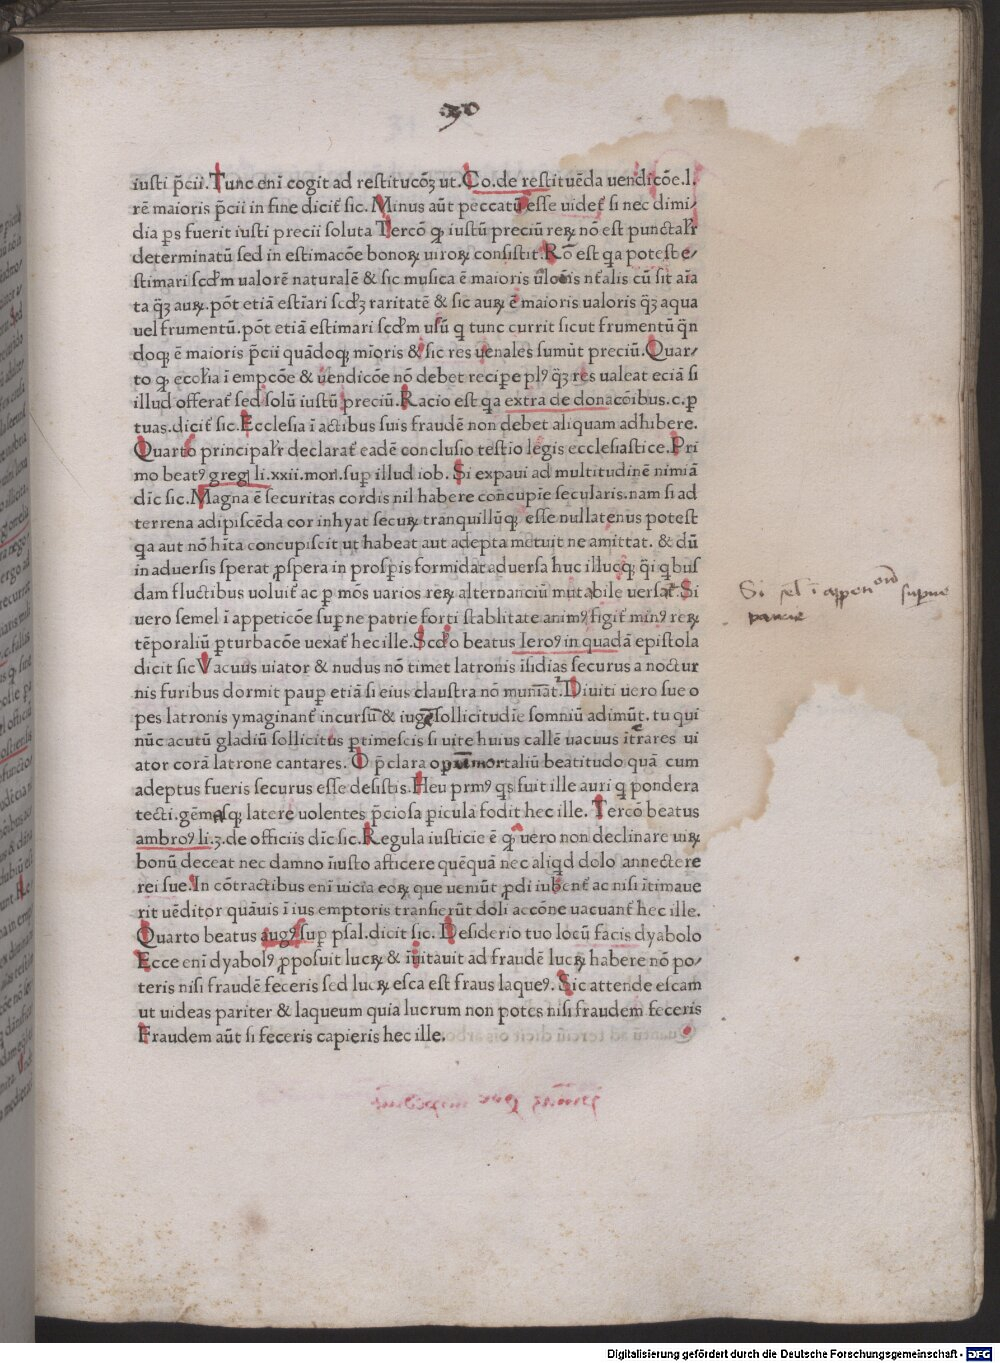 30
iusti p̄cii. Tunc eni̅ cogit ad restituco̅ꝫ ut. Co. de restitue̅da uendico̅e. l.
re̅ maioris p̄cii in fine dicit̅ sic. Minus au̅t peccatu̅ esse uidet̅ si nec dimi/
dia ꝑs fuerit iusti precii soluta Terco̅ ꝙ iustu̅ preciu̅ reꝝ no̅ est punctal'r
determinatu̅ sed in estimaco̅e bonoꝝ uiroꝝ consistit. Ro̅ est qa potest e/
stimari scd'm ualore̅ naturale̅ & sic musica e̅ maioris ualoris nt̅alis cu̅ sit ai̅a
ta q̄ꝫ auꝝ. po̅t etia̅ esti̅ari scd'ꝫ raritate̅ & sic auꝝ e̅ maioris ualoris q̄ꝫ aqua
uel frumentu̅. po̅t etia̅ estimari scd'm usu̅ q tunc currit sicut frumentu̅ q̄n
doqꝫ e̅ maioris p̄cii qua̅doqꝫ mi̅oris & sic res uenales sumu̅t preciu̅. Quar/
to ꝙ eccl'ia i̅ empco̅e & uendico̅e no̅ debet recipe plꝰ q̄ꝫ res ualeat ecia̅ si
illud offerat̅ sed solu̅ iustu̅ preciu̅. Racio est qa extra de donaco̅ibus. c. ꝑ
tuas. dicit̅ sic. Ecclesia i̅ actibus suis fraude̅ non debet aliquam adhibere.
Quarto principal'r declarat̅ eade̅ conclusio testio̅ legis ecclesiastice. Pri
mo beatꝰ greg̅ li. xxii. mor̅. sup illud iob. Si expaui ad multitudine̅ nimia̅
di̅c sic. Magna e̅ securitas cordis nil habere concupi̅e secularis. nam si ad
terrena adipisce̅da cor inhyat secuꝝ tranquillu̅qꝫ esse nullatenus potest
qa aut no̅ hi̅ta concupiscit ut habeat aut adepta metuit ne amittat. & du̅
in aduersis sperat ꝓspera in prosꝑis formidat aduersa huc illucqꝫ q̄i qbus
dam fluctibus uoluit̅ ac ꝑ mo̅s uarios reꝝ alternanciu̅ mutabile uersat̅. Si
uero semel i̅ appetico̅e sup̅ne patrie forti stablitate animꝰ figit̅ minꝰ reꝝ
te̅poraliu̅ ꝑturbaco̅e uexat̅ hec ille. Scd'o beatus Ieroꝰ in quada̅ epistola
dicit sic Vacuus uiator & nudus no̅ timet latronis i̅sidias securus a noctur
nis furibus dormit pauꝑ etia̅ si eius claustra no̅ muni̅at̅. Diuiti uero sue o
pes latronis ymaginant̅ incursu̅ & iuge sollicitudi̅e somniu̅ adimu̅t. tu qui
nu̅c acutu̅ gladiu̅ sollicitus ꝑtimescis si uite huius calle̅ uacuus i̅trares ui
ator cora̅ latrone cantares. O p̄clara opu̅ mortaliu̅ beatitudo qua̅ cum
adeptus fueris securus esse desistis. Heu prmꝰ qs fuit ille auri q pondera
tecti. ge̅masqꝫ latere uolentes p̄ciosa ꝑicula fodit hec ille. Terco̅ beatus
ambroꝰ li. 3. de officiis di̅c sic. Regula iusticie e̅ ꝙ uero non declinare uiꝝ
bonu̅ deceat nec damno i̅iusto afficere que̅qua̅ nec aliqd dolo annectere
rei sue. In co̅tractibus eni̅ uicia eoꝝ que ueniu̅t ꝓdi iubent̅ ac nisi i̅timaue
rit ue̅ditor qua̅uis i̅ ius emptoris transieru̅t doli acco̅ne uacuant̅ hec ille.
Quarto beatus augꝰ sup psal. dicit sic. Desiderio tuo locu̅ facis dyabolo
Ecce eni̅ dyabolꝰ ꝓposuit lucꝝ & i̅uitauit ad fraude̅ lucꝝ habere no̅ po/
teris nisi fraude̅ feceris sed lucꝝ esca est fraus laqueꝰ. Sic attende escam
ut uideas pariter & laqueum quia lucrum non potes nisi fraudem feceris
Fraudem au̅t si feceris capieris hec ille.
Si sel̅ i̅ appeon̅ sup̅ne
patrie
Digitalisierung gefördert durch die Deutsche Forschungsgemeinschaft - DFG